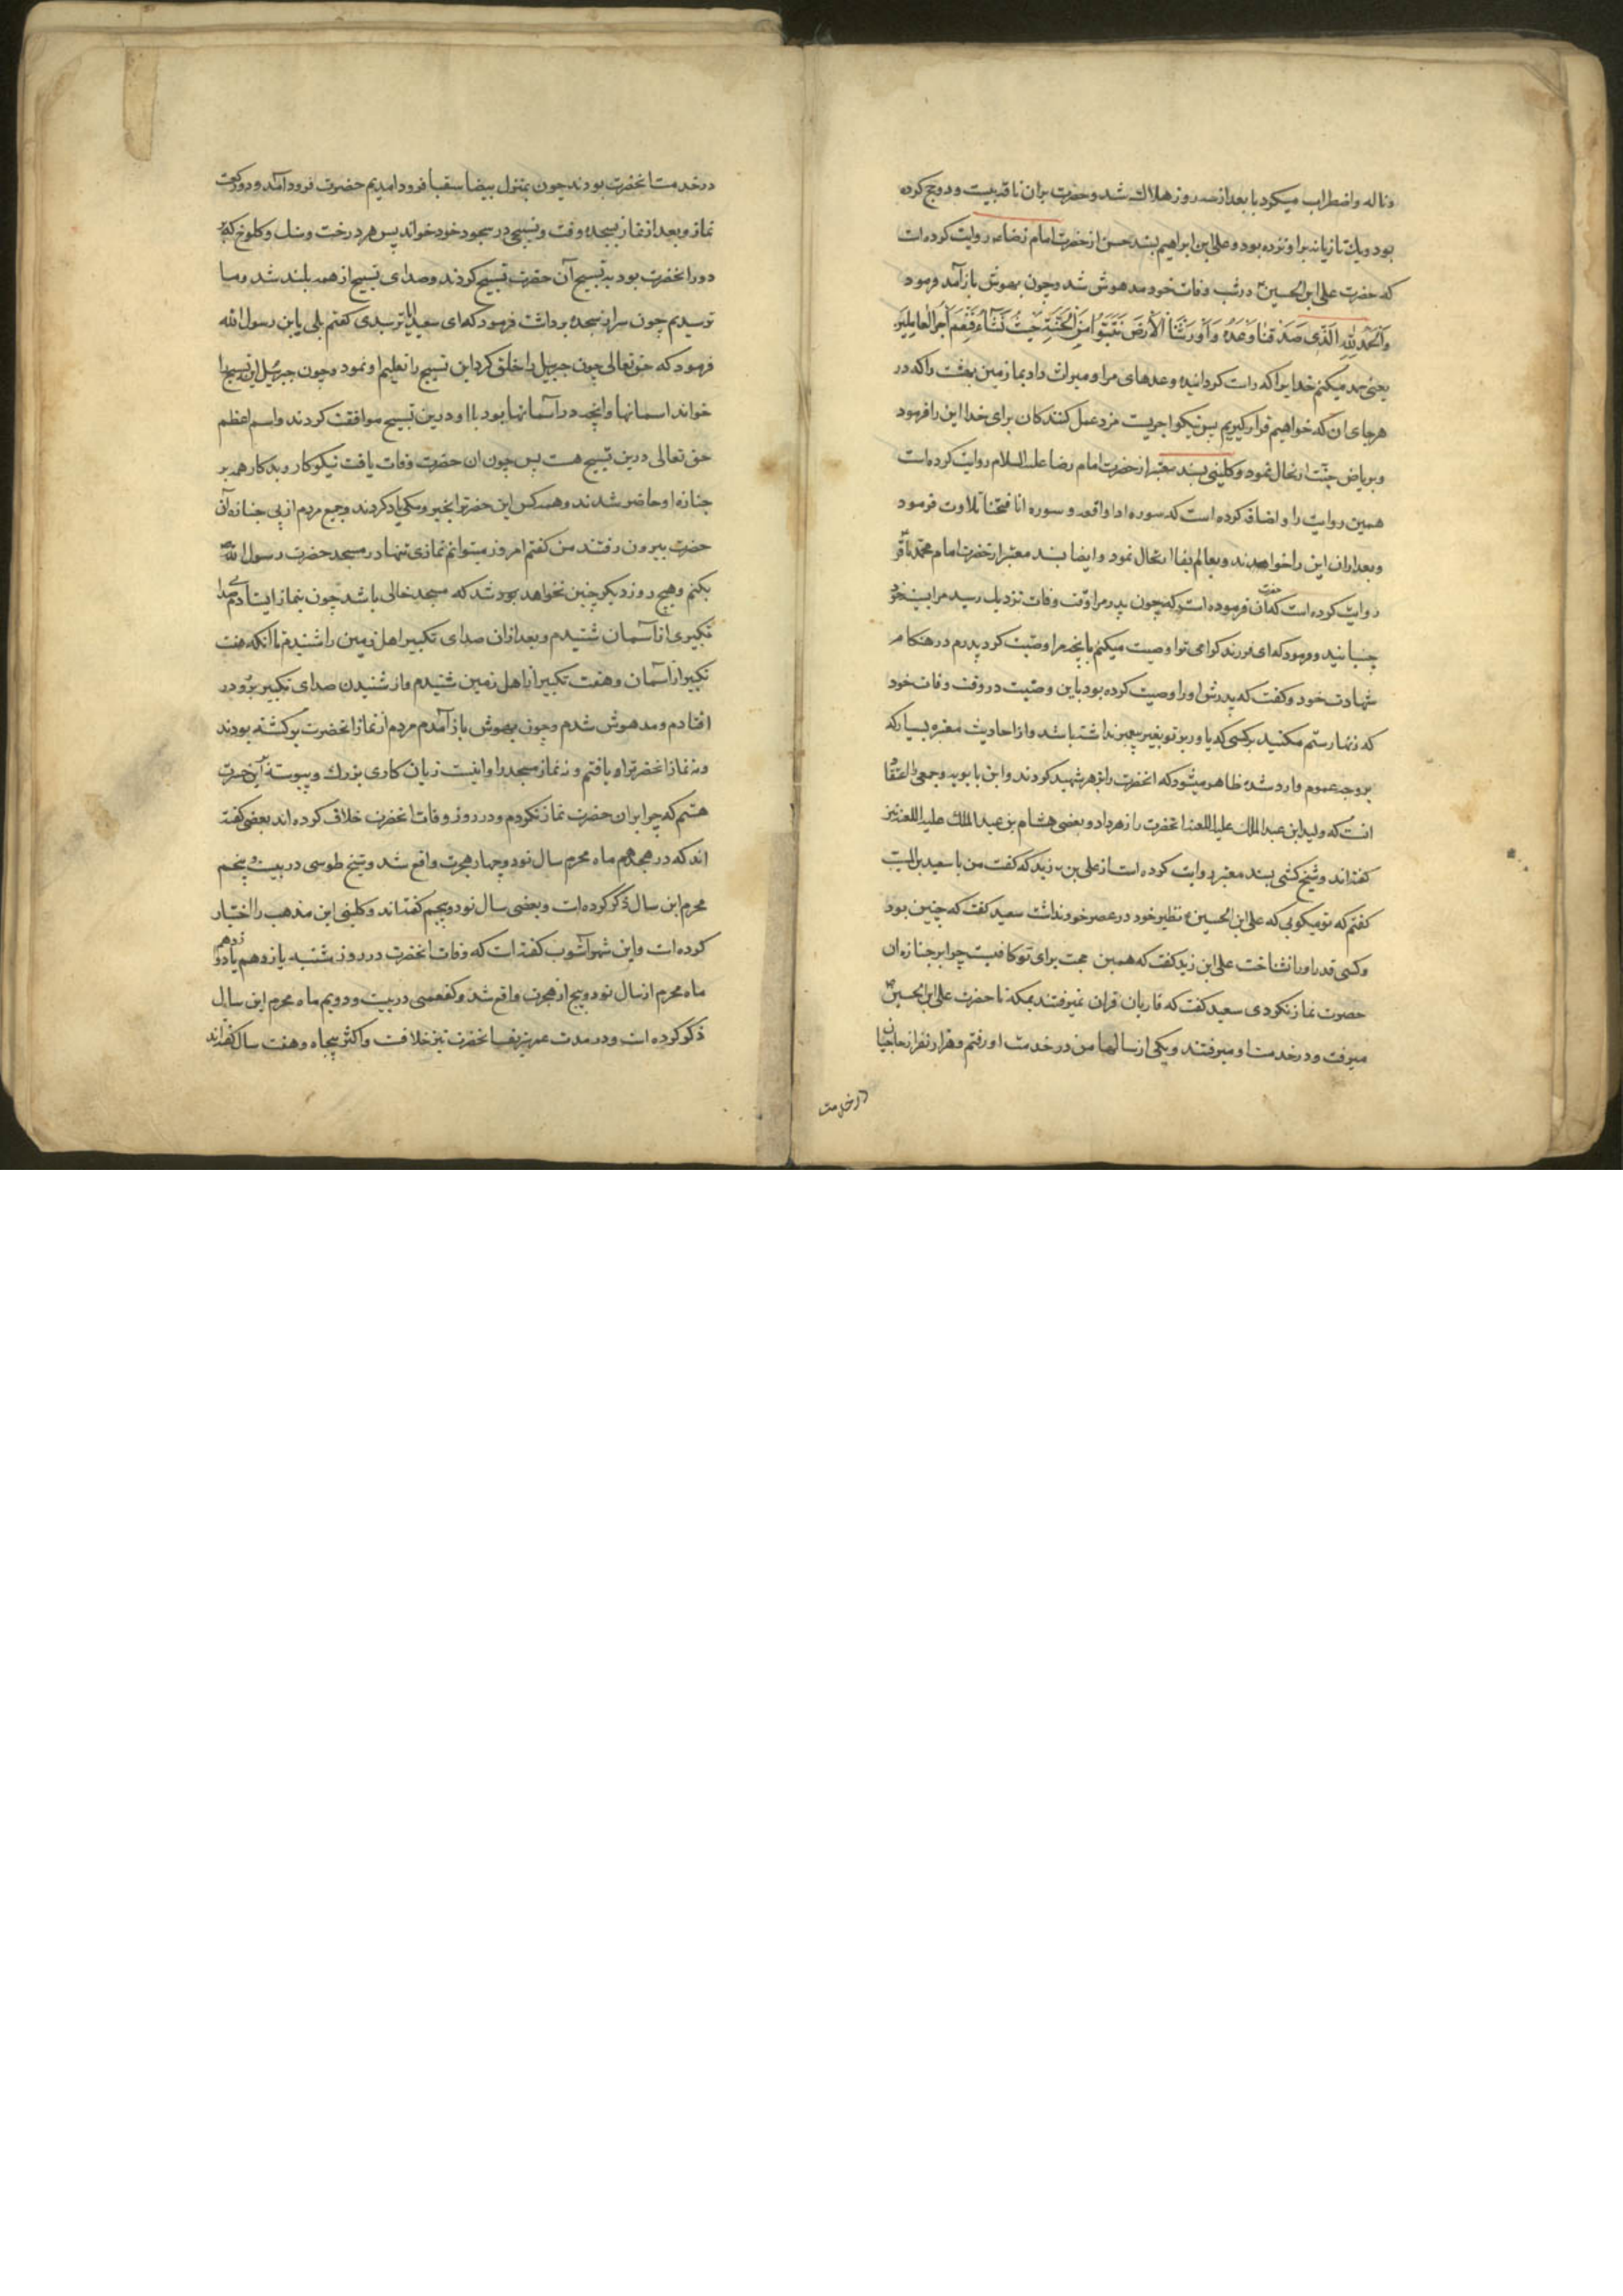 وناله واضطراب میکرد تا بعد از سه روز هلاک شد وحضرت بران ناقه بیست ودو حج کرده
بود ویک تازیانه براو نزده بود وعلی ابن ابراهیم بسند حسن از حضرت امام رضا ع روایت کرده است
که حضرت علی ابن الحسین ع در شب وفات خود مدهوش شد وچون بهوش باز آمد فرمود
وَالْحَمْدُ لِلّٰهِ الَّذِی صَدَقَنَا وَعْدَهُ وَاَوْرَثَنَا الْاَرْضَ نَتَبَوَّأُ مِنَ الْجَنَّةِ حَیْثُ نَشَآءُ فَنِعْمَ اَجْرُ الْعَامِلِینَ
یعنی حمد میکنم خدایرا که راست کردانید وعدهای مرا ومیراث داد بما زمین بهشت را که در
هرجای ان که خواهیم قرار کیریم پس نیکو اجریست مزد عمل کنندکان برای خدا این را فرمود
وبریاض جنّت ارتحال نمود وکلینی بسند معتبر از حضرت امام رضا علیه السلام روایت کرده است
همین روایت را واضافه کرده است که سوره اذا واقعه وسوره انا فتحنا تلاوت فرمود
وبعد ازان این را خواندند وبعالم بقا ارتحال نمود وایضا بسند معتبر از حضرت امام محمد باقر ع
روایت کرده است که آن حضرت فرموده است که چون پدر مرا وقت وفات نزدیک رسید مرا بسینه خود
چسبانید وفرمود که ای فرزند کرامی ترا وصیت میکنم بآنچه مرا وصیّت کرد پدرم در هنکام
شهادت خود وکفت که پدرش اورا وصیت کرده بود باین وصیّت در وقت وفات خود
که زنهار ستم مکنید برکسی که یاوری بر تو بغیر خدا نداشته باشد واز احادیث معتبره بسیار که
بر وجه عموم وارد شده ظاهر میشود که انحضرت را بزهر شهید کردند وابن بابویه وجمعی را اعتقاد
انست که ولید ابن عبد الملک علیه اللعنه انحضرت را زهر داد وبعضی هشام بن عبد الملک علیه اللعنه نیز
کفته اند وشیخ کشی بسند معتبر روایت کرده است از علی بن زید که کفت من با سعید بن المسیب
کفتم که تو میکویی که علی ابن الحسین ع نظیر خود در عصر خود نداشت سعید کفت که چنین بود
وکسی قدر اورا نشناخت علی ابن زید کفت که همین حجت برای تو کافیست چرا بر جنازه ان
حضرت نماز نکردی سعید کفت که قاریان قران نمیرفتند بمکه تا حضرت علی ابن الحسین ع
میرفت ودر خدمت او میرفتند ویکی از سالها من در خدمت او رفتم وهزار نفر از حاجیان
در خدمت
در خدمت انحضرت بودند چون بمنزل بیضا سقبا فرود امدیم حضرت فرود آمد ودو رکعت
نماز وبعد از نماز بسجده رفت وتسبیحی در سجود خود خواند پس هر درخت وسنک وکلوخ که
دور انحضرت بود به تسبیح آن حضرت تسبیح کردند وصدای تسبیح از همه بلند شد وما
ترسیدیم چون سر از سجده برداشت فرمود که ای سعید ایا ترسیدی کفتم بلی یابن رسول الله
فرمود که حق تعالی چون جبرییل را خلق کرد این تسبیح را تعلیم او نمود وچون جبرئیل این تسبیح را
خواند اسمانها وانچه در آسمانها بود با او درین تسبیح موافقت کردند واسم اعظم
حق تعالی درین تسبیح هست پس چون ان حضرت وفات یافت نیکوکار وبدکار همه بر
جنازه او حاضر شدند وهمه کس این حضرت را بخیر ونیکی یاد کردند وجمیع مردم از پی جنازه آن
حضرت بیرون رفتند من کفتم امروز میتوانم نمازی تنها در مسجد حضرت رسول الله
بکنم وهیچ روز دیکر چنین نخواهد بود شد که مسجد خالی باشد چون بنماز ایستادم صدای
تکبیری از آسمان شنیدم وبعد ازان صدای تکبیر اهل زمین را شنیدم تا آنکه هفت
تکبیر از آسمان وهفت تکبیر از اهل زمین شنیدم واز شنیدن صدای تکبیر برو در
افتادم ومدهوش شدم وچون بهوش باز آمدم مردم از نماز انحضرت برکشته بودند
ونه نماز انحضرت را و یافتم ونه نماز مسجد را واینست زیان کاری بزرک وپیوسته درین حسرت
هستم که چرا بران حضرت نماز نکردم ودر روز وفات انحضرت خلاف کرده اند بعضی کفته
اند که در هجدهم ماه محرم سال نود وچهار هجرت واقع شد وشیخ طوسی در بیست وپنجم
محرم این سال ذکر کرده است وبعضی سال نود وپنجم کفته اند وکلینی این مذهب را اختیار
کرده است وابن شهر آشوب کفته است که وفات انحضرت در روز شنبه یازدهم یا دوازدهم
ماه محرم از سال نود وپنج از هجرت واقع شد وکفعمی در بیست ودویم ماه محرم این سال
ذکر کرده است ودر مدت عمر شریف انحضرت نیز خلافست واکثر پنجاه وهفت سال کفته اند